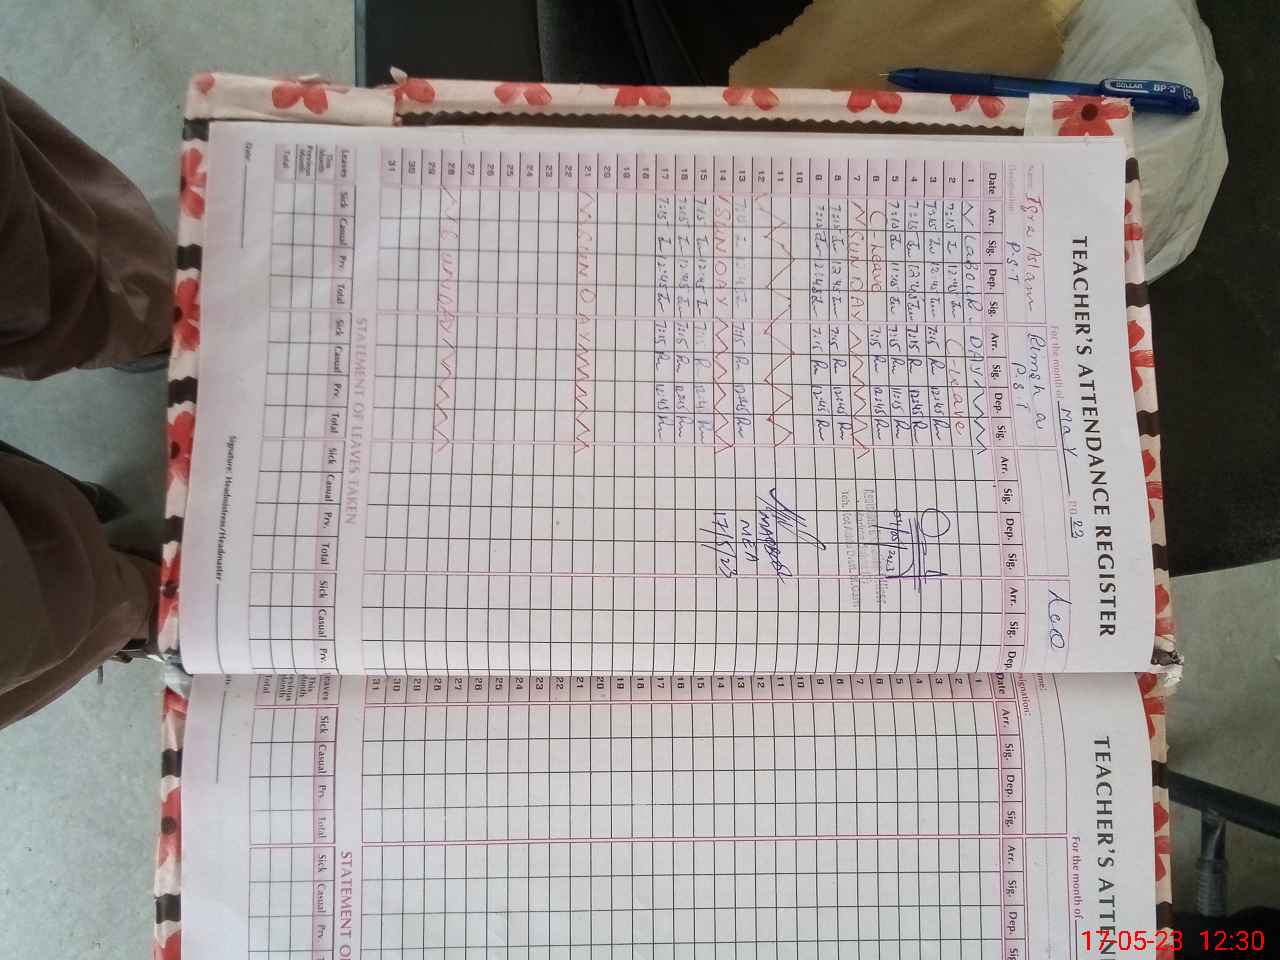 TEACHER'S ATTENDANCE REGISTER
For the month of May 2023
Name: Iqra Aslam Rimsha
Designation: P.S.T P.S.T
Leo
Date Arr. Sig. Dep. Sig. Arr. Sig. Dep. Sig. Arr. Sig. Dep. Sig. Arr. Sig. Dep.
1 LABOUR DAY
2 7:15 12:45 C-leave
3 7:15 12:45 7:15 12:45
4 7:15 12:45 7:15 12:45
5 7:15 11:45 7:15 11:15
04/05/2023
6 C-leave 7:15 12:45
7 SUNDAY
8 7:15 12:45 7:15 12:45
9 7:15 12:45 7:15 12:45
10
11
12
13 7:15 12:45
MEA
14 SUNDAY
17/5/23
15 7:15 12:45 7:15 12:45
16 7:15 12:45 7:15 12:45
17 7:15 12:45 7:15 12:45
18
19
20
21 SUNDAY
22
23
24
25
26
27
28 SUNDAY
29
30
31
STATEMENT OF LEAVES TAKEN
Leaves Sick Casual Prv. Total Sick Casual Prv. Total Sick Casual Prv. Total Sick Casual Prv.
This Month
Previous Month
Total
Date:
Signature: Headmistress/Headmaster
TEACHER'S ATTEN
For the month of
Date Arr. Sig. Dep. Sig. Arr. Sig. Dep.
1
2
3
4
5
6
7
8
9
10
11
12
13
14
15
16
17
18
19
20
21
22
23
24
25
26
27
28
29
30
31
STATEMENT O
Sick Casual Prv. Total Sick Casual Prv.
This Month
Total
DOLLAR BP-3
17-05-23 12:30